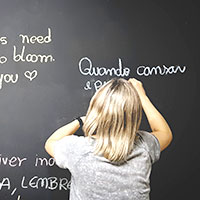 s need
o bloom.
you ♡
Quando cansar
e p
iver in
A, LEMBRE